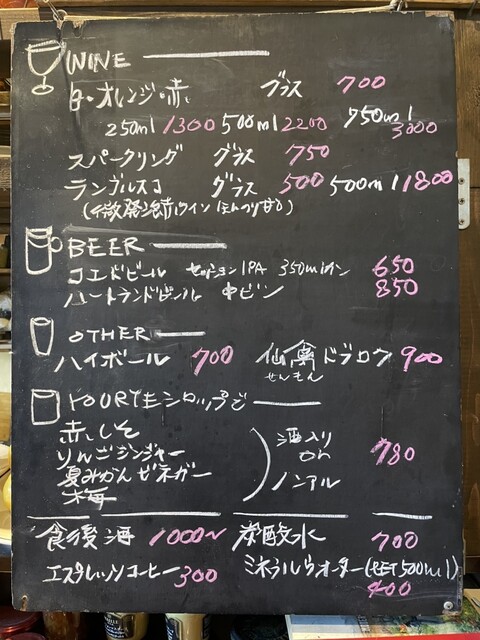 WINE
白・オレンジ・赤 グラス 700
250ml 1300 500ml 2200 750ml 3000
スパークリング グラス 750
ランブルスコ グラス 500 500ml 1800
(微発泡赤ワイン ほんのり甘口)
BEER
コエドビール セッションIPA 350mlカン 650
ハートランドビール 中ビン 850
OTHER
ハイボール 700 仙禽 ドブロク 900
せんきん
シロップで
赤しそ
りんごジンジャー
夏みかんビネガー
梅
酒入り
or
ノンアル
780
食後酒 1000~ 炭酸水 700
エスプレッソコーヒー 300 ミネラルウォーター(PET500ml)
400